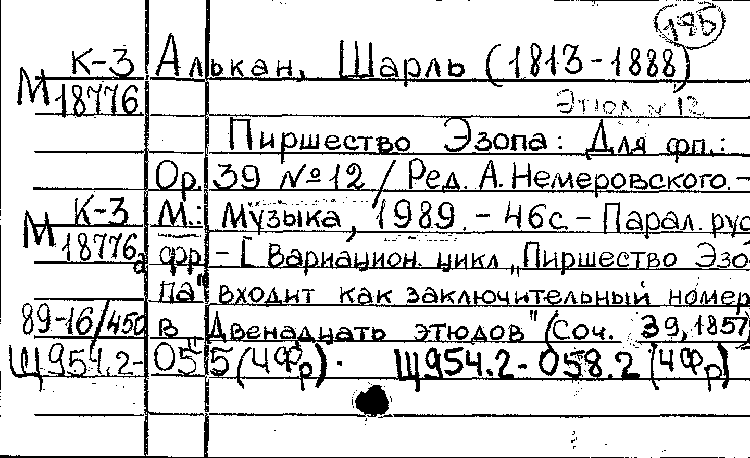 186
К-3 Алькан, Шарль (1813-1888)
М18776
Этюд № 12
Пиршество Эзопа: Для фп.:
Op. 39 № 12 / Ред. А. Немеровского. -
К-3 М.: Музыка, 1989. - 46с. - Парал. рус
М18776а фр. - [Вариацион. цикл „Пиршество Эзо-
па" входит как заключительный номер
89-16/450 в „Двенадцать этюдов" (Соч. 39, 1857)
Щ954.2-055(4Фр). Щ954.2-058.2(4Фр)